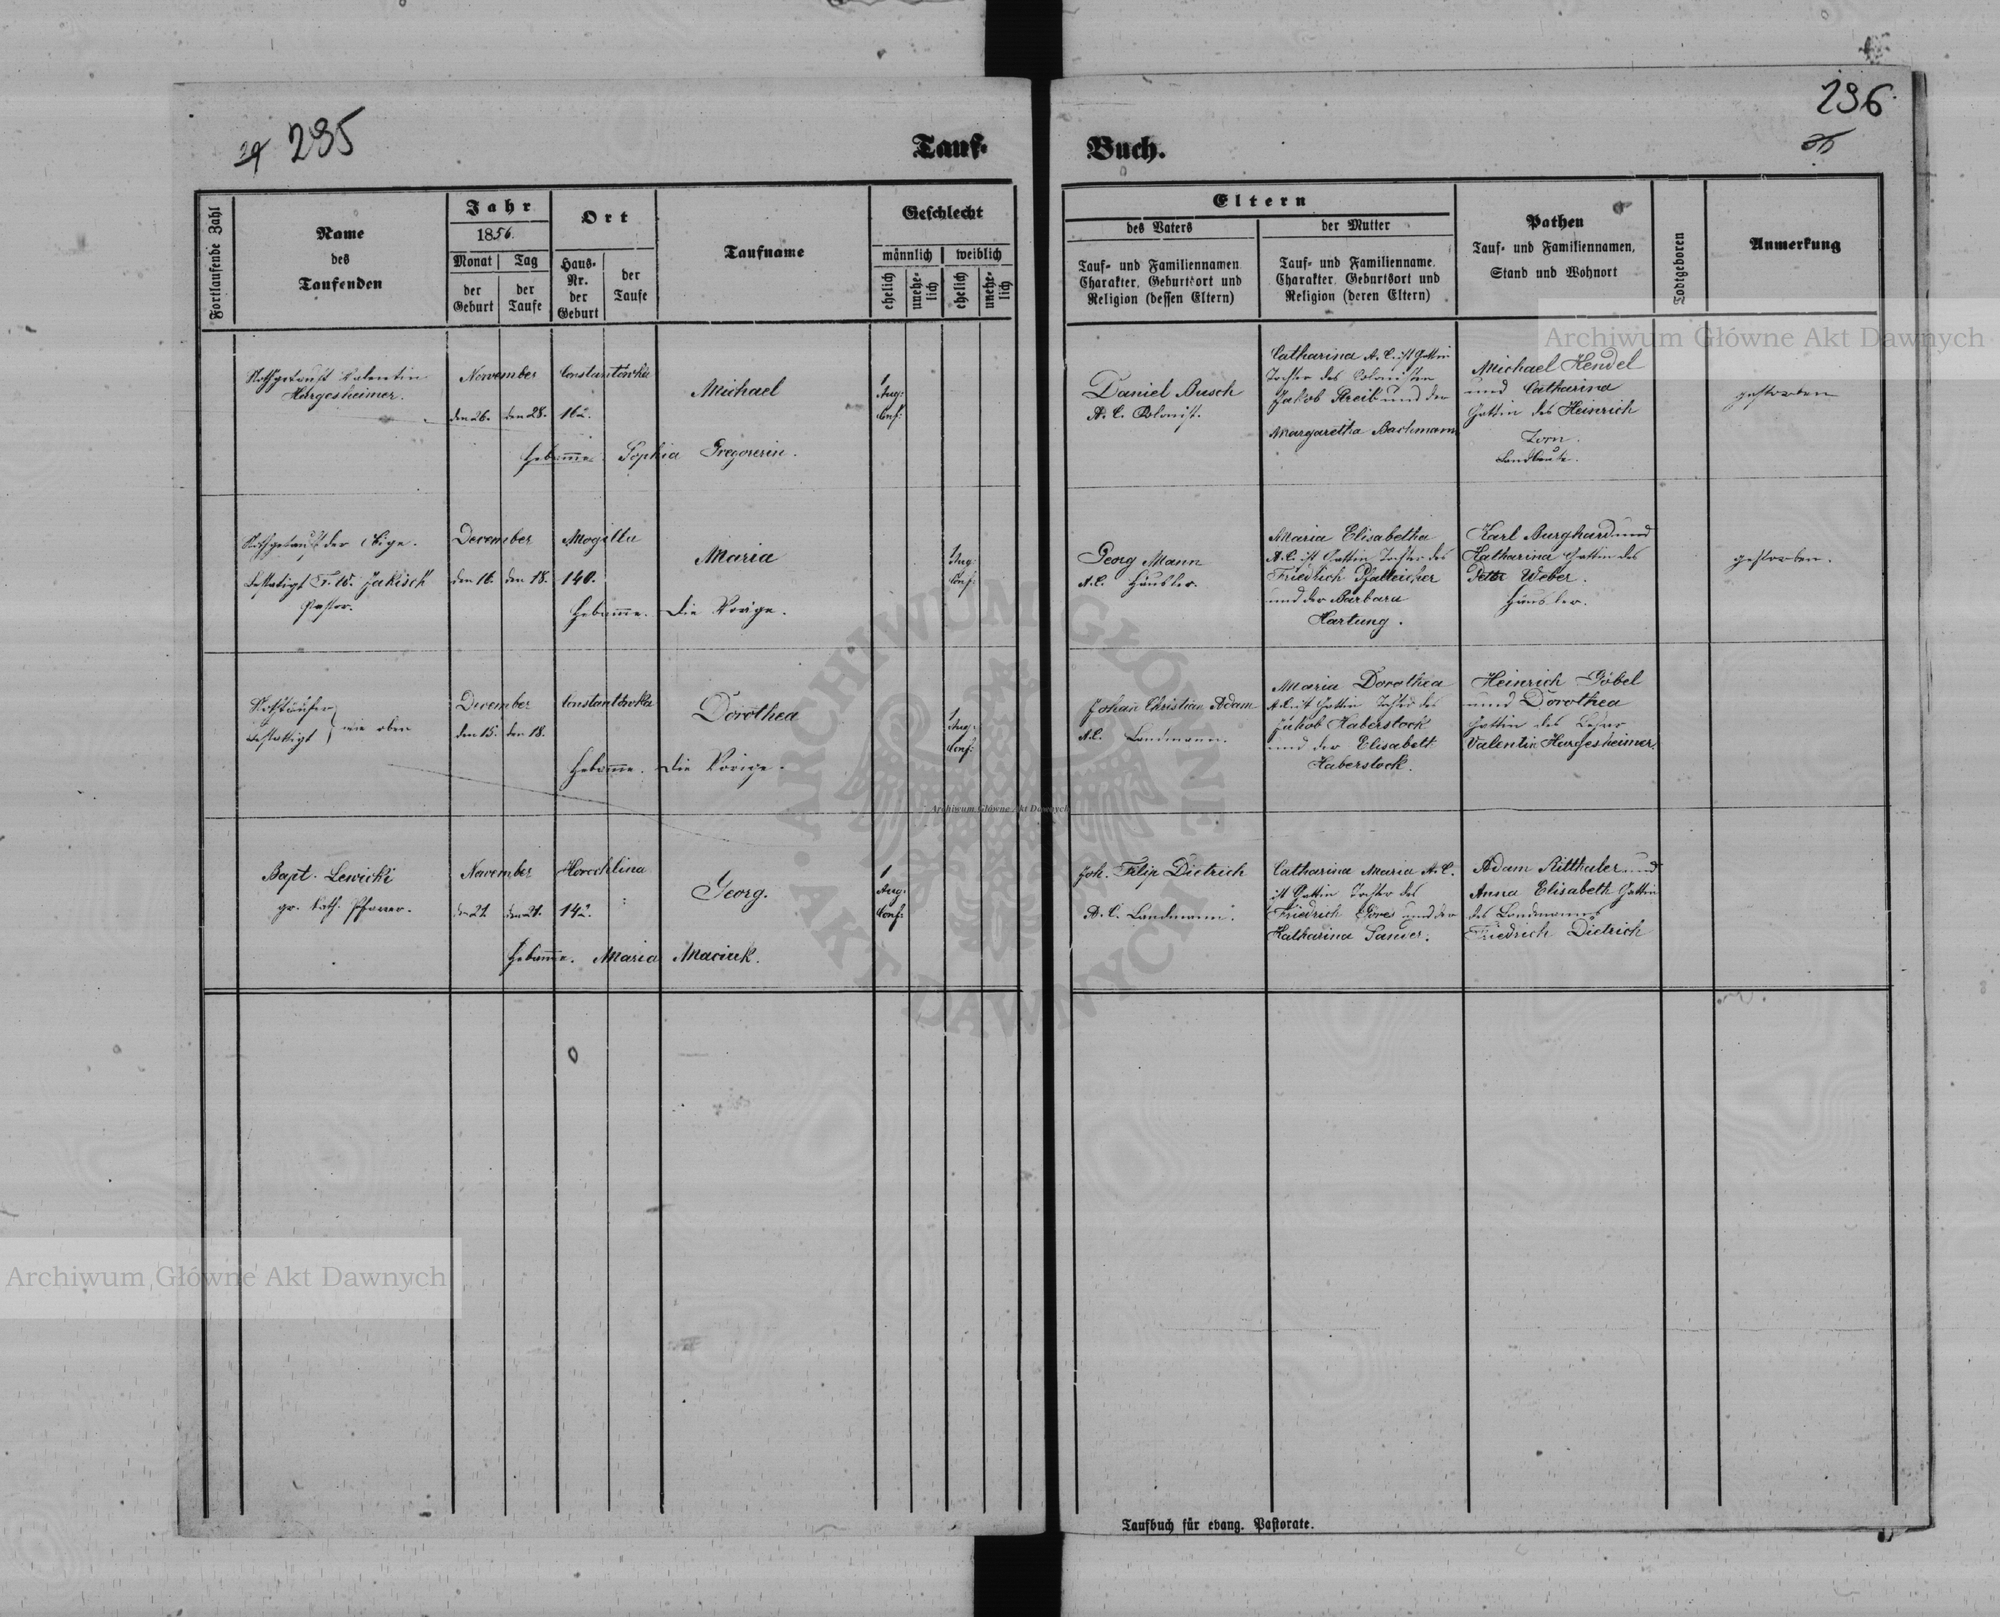 295
296
Tauf-
Buch.
Fortlaufende Zahl
Name
des
Taufenden
Jahr
1856.
Monat
Tag
der
Geburt
der
Taufe
Ort
Haus-
Nr.
der
Geburt
der
Taufe
Taufname
Geschlecht
männlich
weiblich
ehelich
unehe-
lich
ehelich
unehe-
lich
Eltern
des Vaters
Tauf- und Familiennamen
Charakter, Geburtsort und
Religion (dessen Eltern)
der Mutter
Tauf- und Familienname,
Charakter, Geburtsort und
Religion (deren Eltern)
Pathen
Tauf- und Familiennamen,
Stand und Wohnort
Todtgeboren
Anmerkung
Nothgetauft Valentin
Hargesheimer.
November
den 26. den 28.
Constantówka
162.
Michael
1
Aug:
Conf:
Hebamme Sophia Gregorerin.
Daniel Busch
A. C. Colonist.
Catharina A. C. ist Gattin
Tochter des Colonisten
Jakob Streib und der
Margaretha Bachmann
Michael Hendel
und Catharina
Gattin des Heinrich
Zorn.
Landleute.
gestorben
Nothgetauft der Obige.
bestatigt F. W. Jakisch
Pastor.
December
den 16. den 18.
Mogilla
140.
Maria
1
Aug:
Conf:
Hebamme. Die Vorige.
Georg Mann
A. C. Häusler.
Maria Elisabetha
A. C. ist Gattin Tochter des
Friedrich Pfalleicher
und der Barbara
Hartung.
Karl Burghard und
Katharina Gattin des
Peter Weber.
Häusler.
gestorben.
Nothtäufer
bestattigt } wie oben
December
den 15. den 18.
Constantówka
Dorothea
1
Aug:
Conf:
Hebamme. Die Vorige.
Johan Christian Adam
A. C. Landmann.
Maria Dorothea
A. C. ist Gattin Tochter des
Jakob Haberstock
und der Elisabeth
Haberstock.
Heinrich Göbel
und Dorothea
Gattin des
Valentin Hargesheimer.
Bapt. Lewicki
gr. kath. Pfarrer.
November
den 21. den 21.
Horechlina
142.
Georg.
1
Aug.
Conf:
Hebamme. Maria Maciuk.
Joh. Filip Dietrich
A. C. Landmann.
Catharina Maria A. C.
ist Gattin Tochter des
Friedrich Göres und der
Katharina Sander.
Adam Ritthaler und
Anna Elisabeth Gattin
des Landmanns
Friedrich Dietrich
Taufbuch für evang. Pastorate.
Archiwum Główne Akt Dawnych
Archiwum Główne Akt Dawnych
Archiwum Główne Akt Dawnych
ARCHIWUM GŁÓWNE AKT DAWNYCH